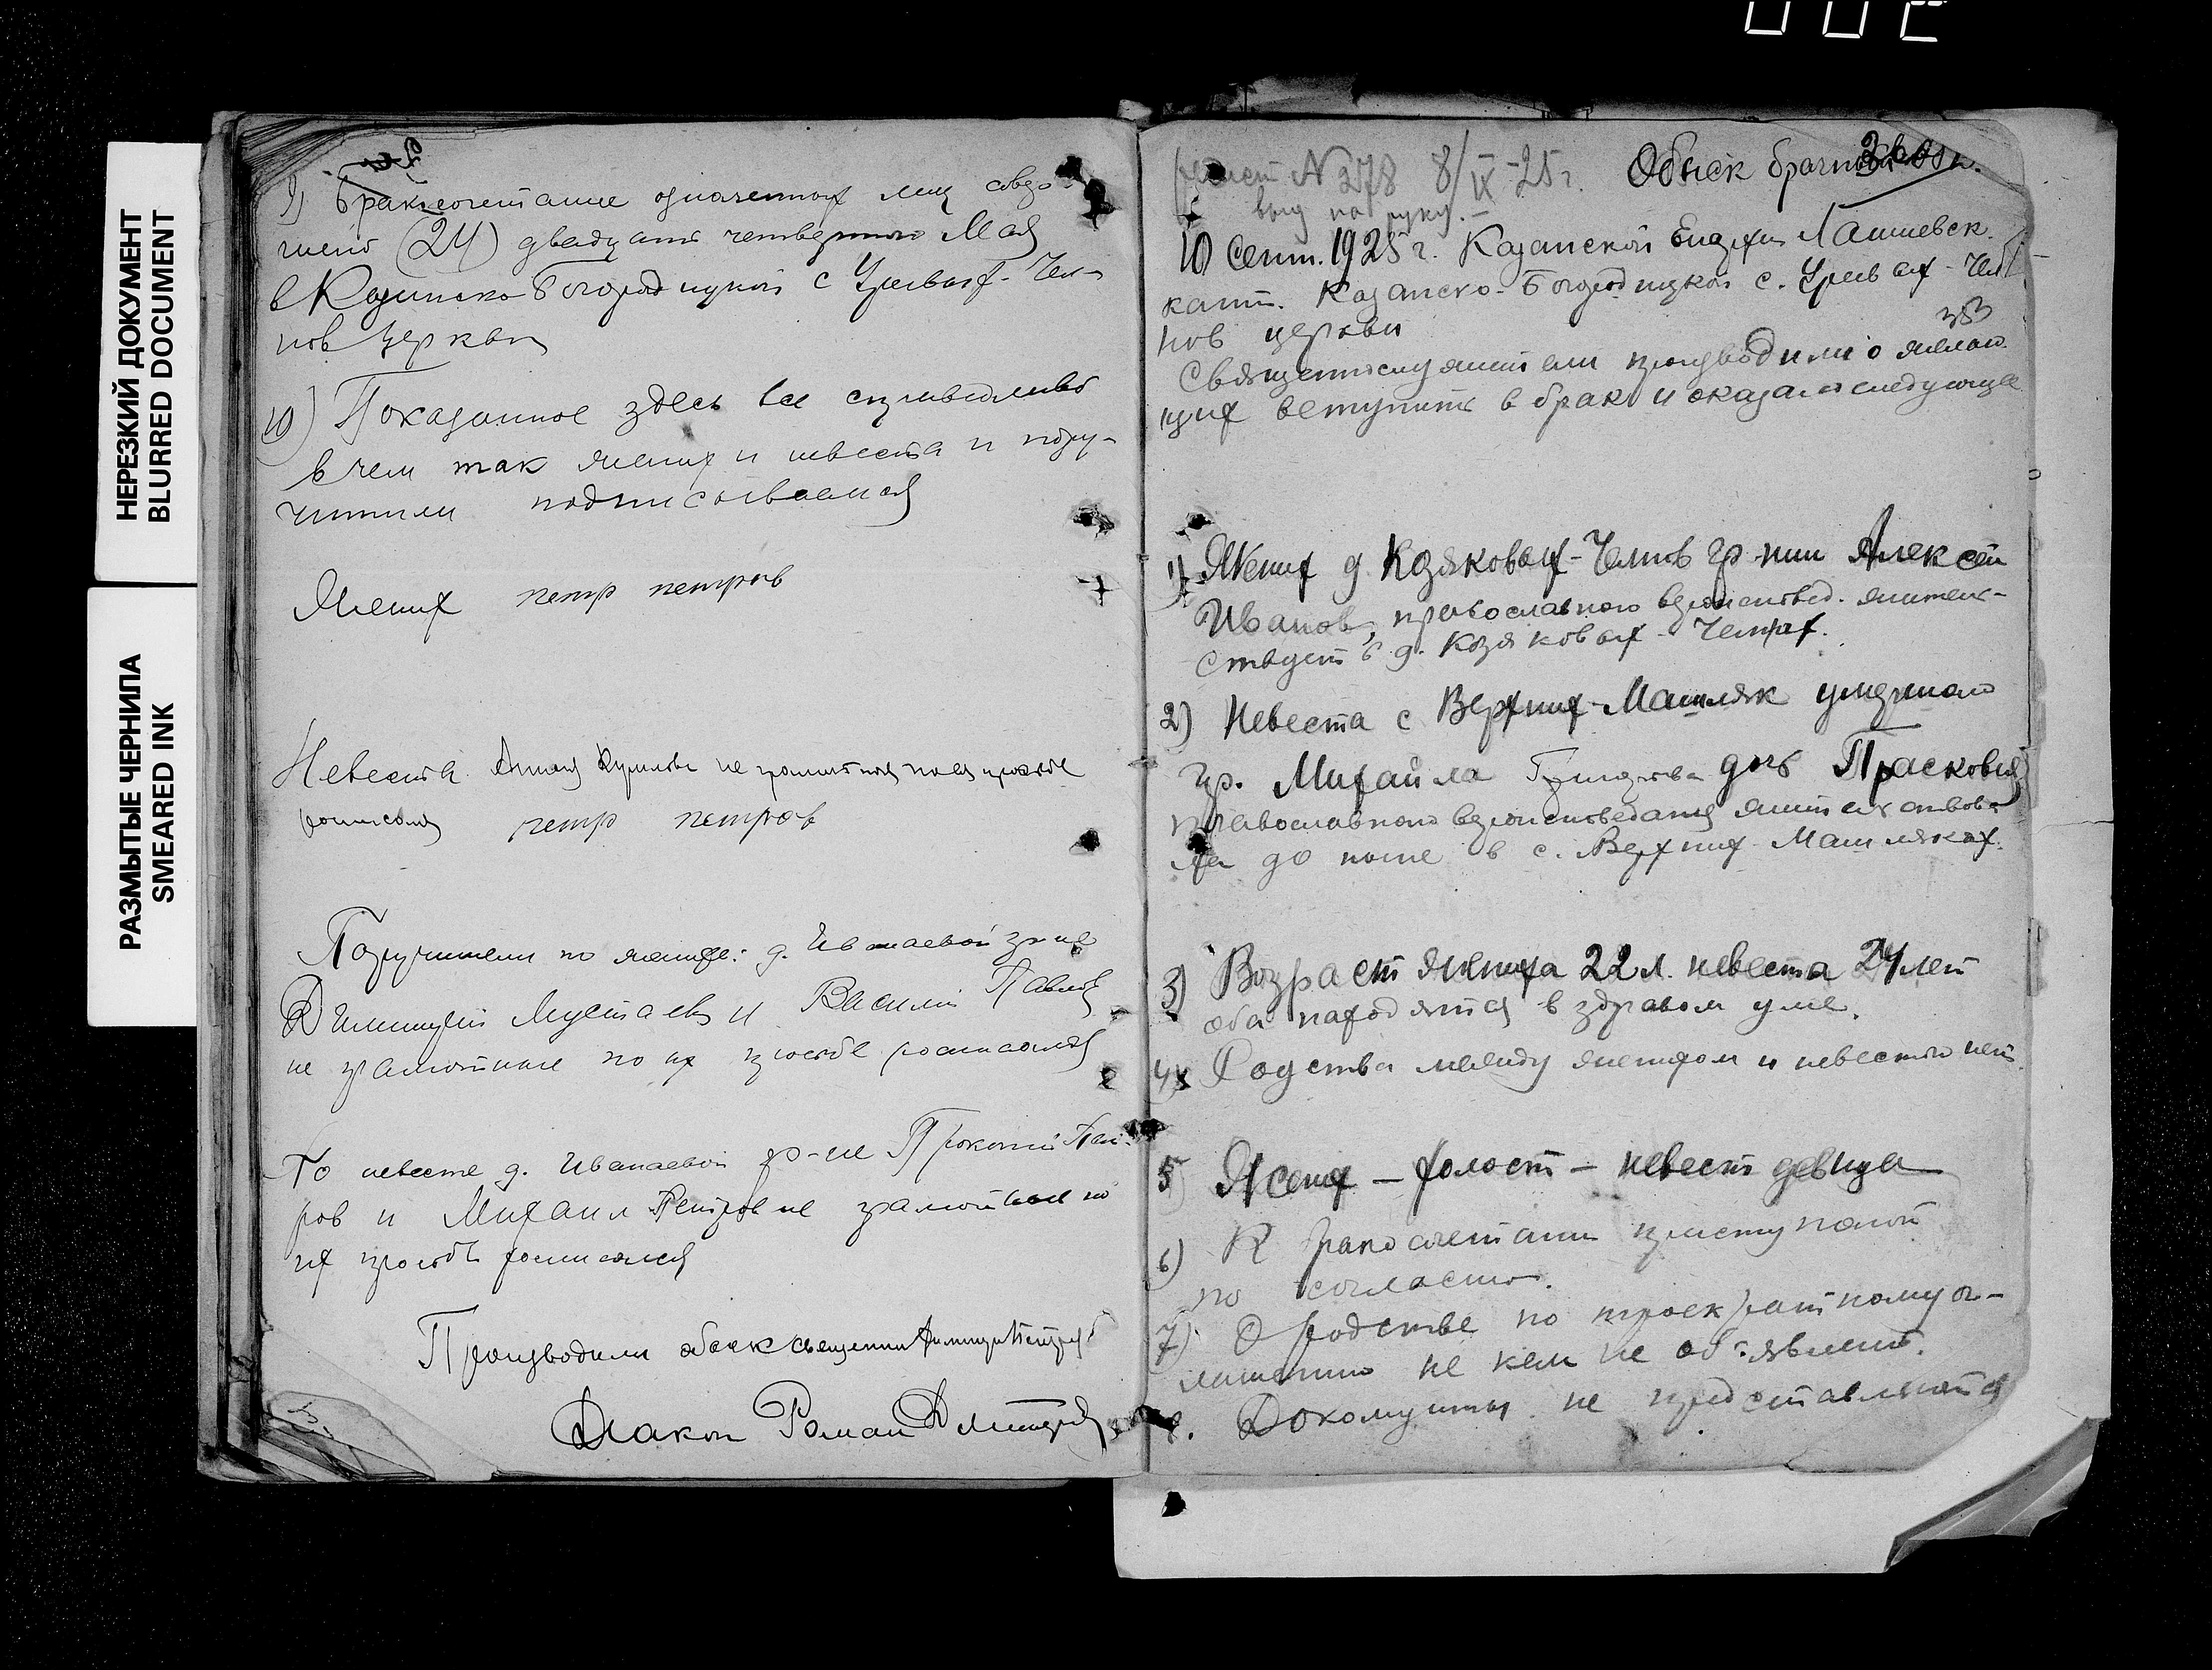 НЕРЕЗКИЙ ДОКУМЕНТ
BLURRED DOCUMENT
РАЗМЫТЫЕ ЧЕРНИЛА
SMEARED INK
9) Бракосочетание означенных лиц совер-
шено (24) двадцать четвертого Мая
в Казанско-Богородицкой с Уреевых-Чел-
нов церкви
10) Показанное здесь все справедливо
в чем так жених и невеста и пору-
чители подписываемся
Жених петр петров
Невеста Анна не грамотная по ея просьбе
росписался петр петров
Поручители по женихе: д. Иванаевой гр-не
Димитрий Мустаев и Василий Павлов
не грамотные по их просьбе росписался
По невесте д. Иванаевой гр-не Прокопий Пет-
ров и Михаил Петров не грамотные по
их просьбе росписался
Производили обыск священник Димитрий Петров
Диакон Роман Дмитриев
N 278 8/IX-25 г. Обыск брачный
выд на руку.
10 Сент. 1925 г. Казанской Епархии Лаишевск.
кант. Казанско-Богородицкой с. Уреевых-Чел-
нов церкви
383
Священнослужители производили о желаю-
щих вступить в брак и оказалось следующее
1) Жених д Козяковых-Челнов гр-нин Алексей
Иванов, православного вероисповед. жительс-
ствует в д. Козяковых-Челнах.
2) Невеста с Верхних-Машляк умершаго
гр. Михаила дочь Прасковия
православного вероисповедания жительствова-
ла до ныне в с. Верхних-Машляках.
3) Возраст жениха 22 л. невеста 24 лет
оба находятся в здравом уме.
4) Родства между женихом и невестою нет.
5 Жених — холост — невест девица
6) К бракосочетанию приступают
по согласию.
7) О родстве по троекратному ог-
лашению не кем не объявлено.
8. Докоменты не представляются